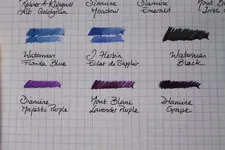 Diamine
Meadow
Diamine
Emerald
Waterman
Florida Blue
J. Herbin
Eclat de Saphir
Waterman
Black
Diamine
Majestic Purple
Mont Blanc
Lavender Purple
Diamine
Grape